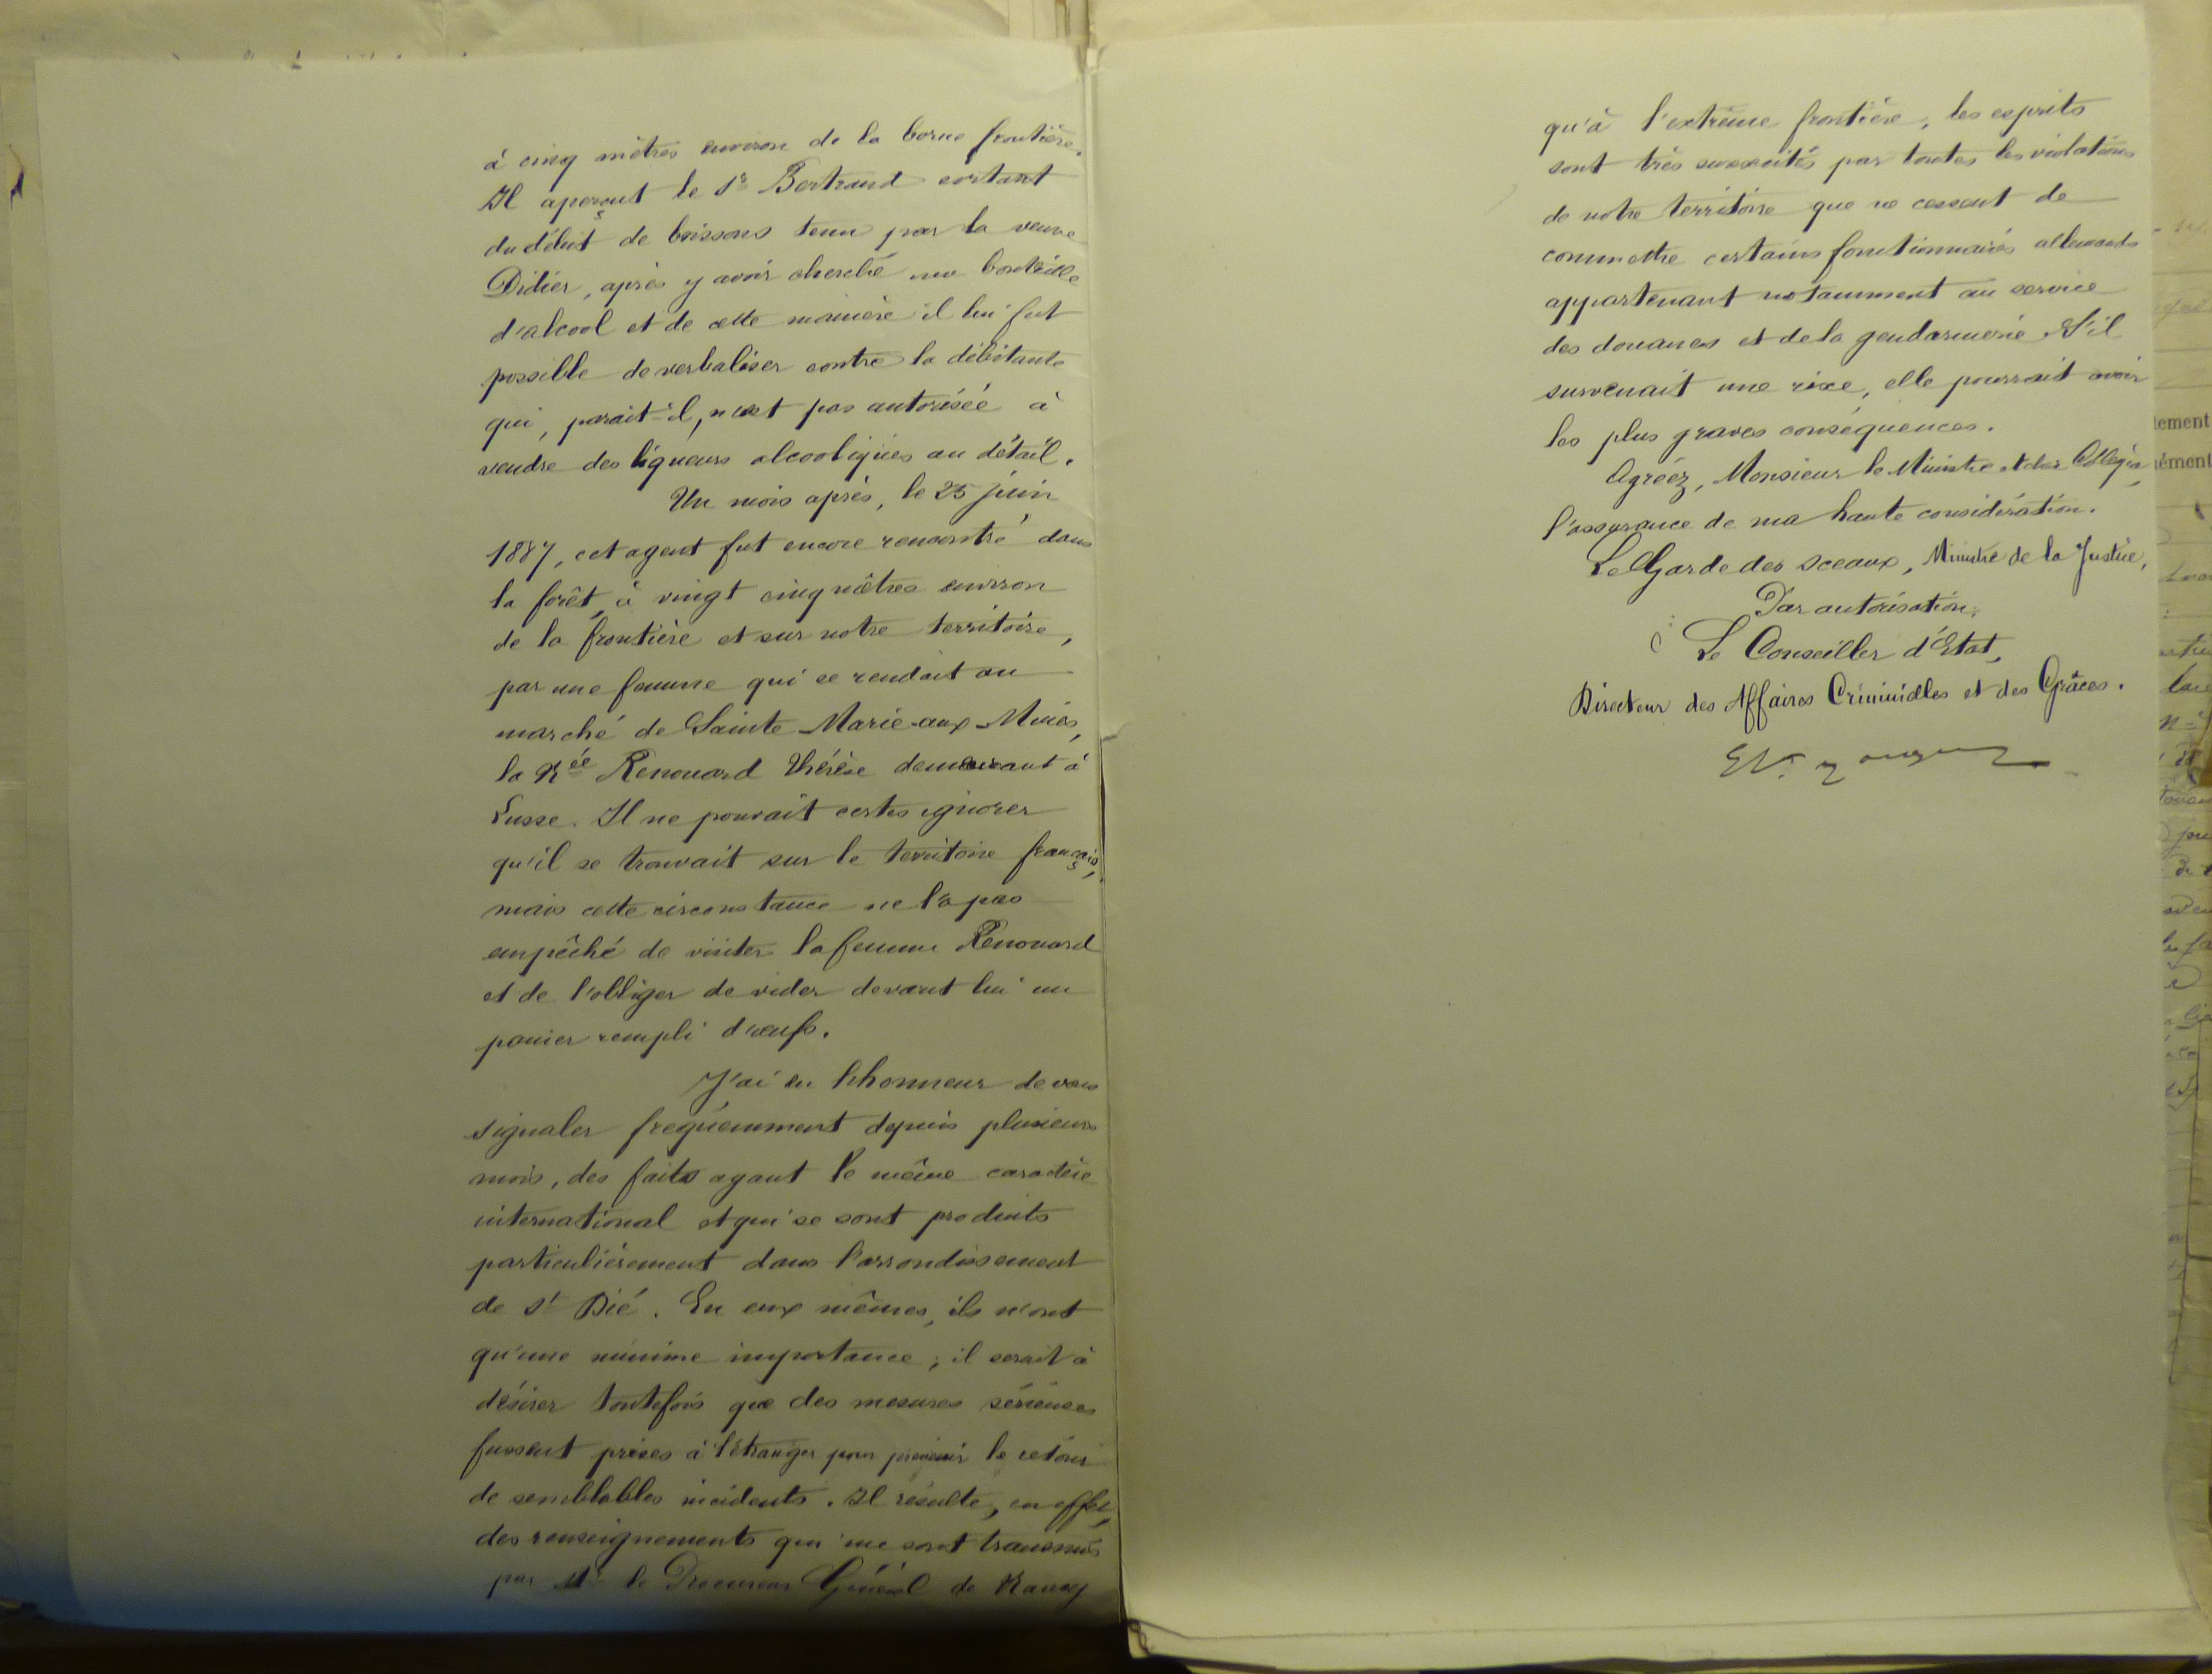 à cinq mètres environ de la borne frontière.
Il aperçut le Sr Bertrand sortant
du débit de boissons tenu par la veuve
Didier, après y avoir cherché une bouteille
d'alcool et de cette manière il lui fut
possible de verbaliser contre la débitante
qui, parait-il, n'est pas autorisée à
vendre des liqueurs alcooliques au détail.
Un mois après, le 25 juin
1887, cet agent fut encore rencontré dans
la forêt, à vingt cinq mètres environ
de la frontière et sur notre territoire,
par une femme qui se rendait au
marché de Sainte Marie-aux-Mines,
la née Renouard Thérèse demeurant à
Lusse. Il ne pouvait certes ignorer
qu'il se trouvait sur le territoire français,
mais cette circonstance ne l'a pas
empêché de visiter la femme Renouard
et de l'obliger de vider devant lui un
panier rempli d'œufs.
J'ai eu l'honneur de vous
signaler fréquemment depuis plusieurs
mois, des faits ayant le même caractère
international et qui se sont produits
particulièrement dans l'arrondissement
de St Dié. En eux mêmes, ils n'ont
qu'une minime importance; il serait à
désirer toutefois que des mesures sérieuses
fussent prises à l'étranger pour prévenir le retour
de semblables incidents. Il résulte, en effet,
des renseignements qui me sont transmis
par Mr le Procureur Général de Nancy
qu'à l'extrême frontière, les esprits
sont très surexcités par toutes les violations
de notre territoire que ne cessent de
commettre certains fonctionnaires allemands
appartenant notamment au service
des douanes et de la gendarmerie. S'il
survenait une rixe, elle pourrait avoir
les plus graves conséquences.
Agréez, Monsieur le Ministre et cher Collègue,
l'assurance de ma haute considération.
Le Garde des sceaux, Ministre de la Justice,
Par autorisation:
Le Conseiller d'Etat,
Directeur des Affaires Criminelles et des Grâces.